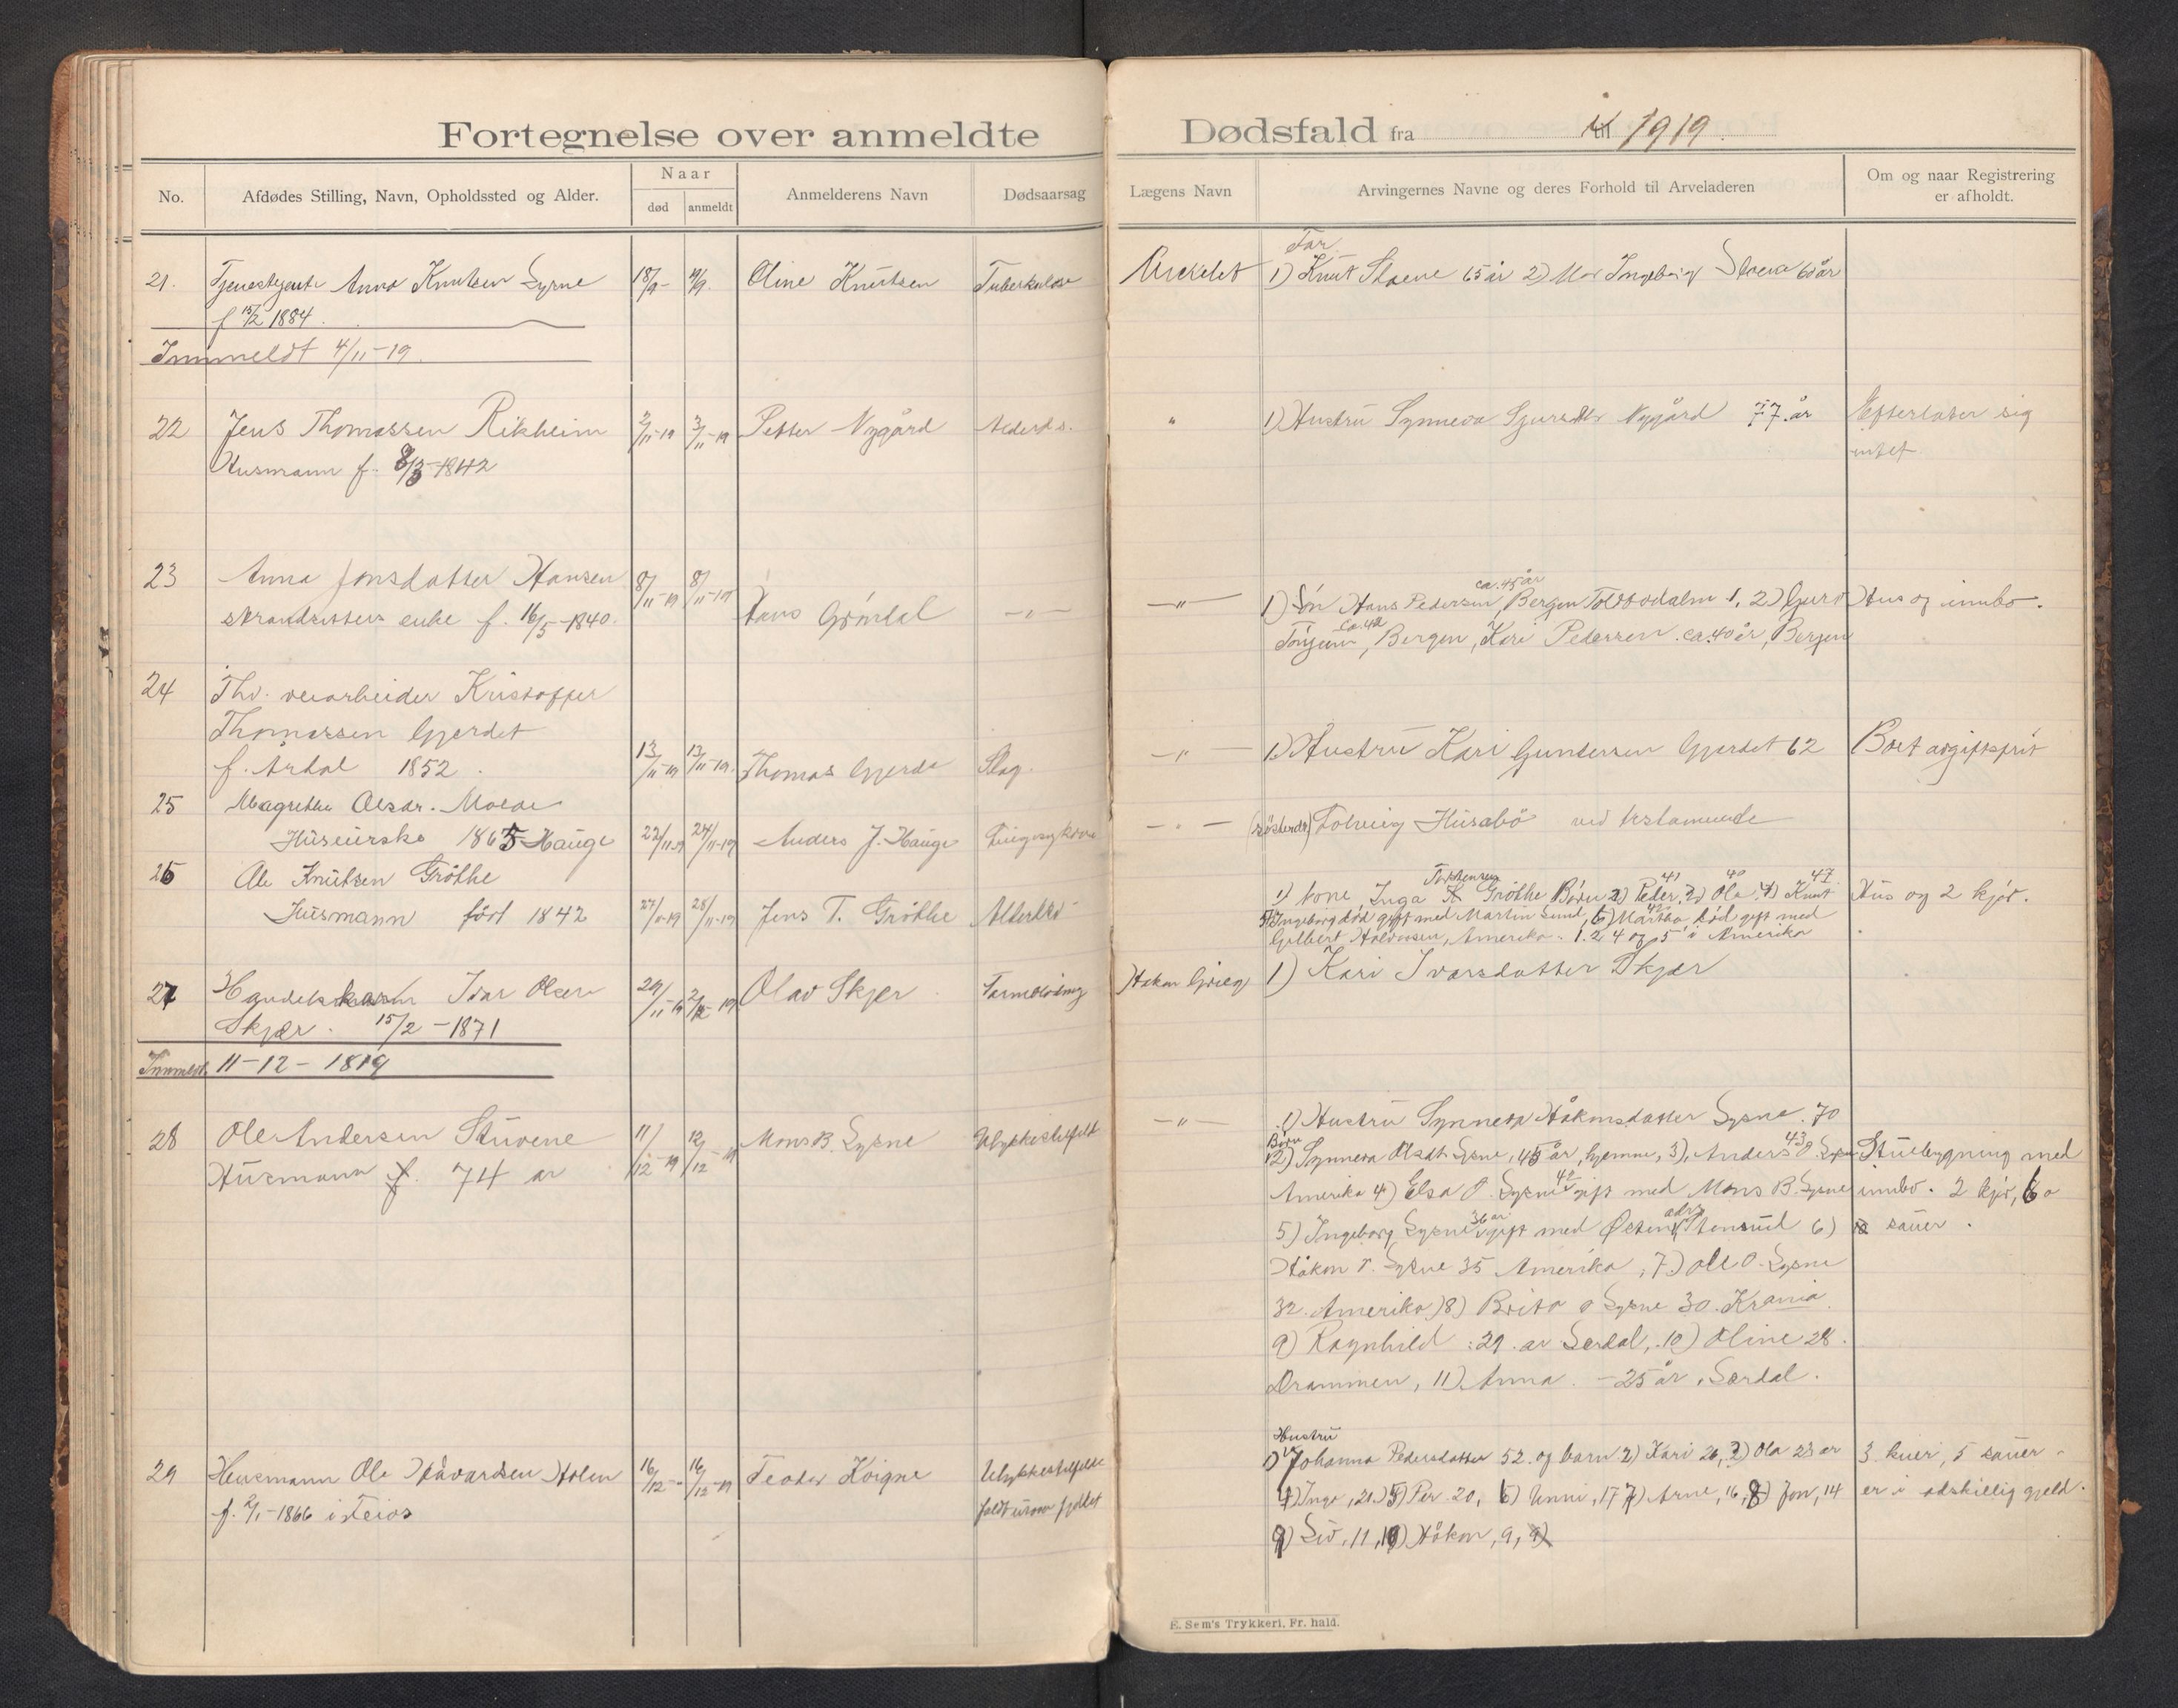 Fortegnelse over anmeldte Dødsfald fra i 1919.
No.
Afdødes Stilling, Navn, Opholdssted og Alder.
Naar
død
anmeldt
Anmelderens Navn
Dødsaarsag
Lægens Navn
Arvingernes Navne og deres Forhold til Arveladeren
Om og naar Registrering
er afholdt.
21. Tjenestejente Anna Knutsen 18/9- Oline Knutsen Tuberkulose
f 15/2 1884.
Far
1) Knut 65 år 2) Mor Ingeborg 60 år
Innmeldt 4/11-19.
22 Jens Thomassen Rikheim 2/11-19 3/11-19 Petter Nygård Alderd s.
Husmann f. 1842
" 1) Hustru Synneva Nygård 77 år
Efterlater sig
intet
23 Anna Jonsdatter Hansen 8/11-19 8/11-19 Hans Grøndal -"-
strandsitters enke f. 16/5-1840.
-"- 1) Søn Hans Pedersen, ca. 45 år Bergen Toldbodalm 1, 2) Guro
ca. 42 Bergen, Kari Pedersen. ca. 40 år, Bergen
Hus og innbo.
24 Fhv. veiarbeider Kristoffer
Thomassen Gjerdet
f. Årdal 1852. 13/11-19 13/11-19. Thomas Gjerde Slag.
-"- 1) Hustru Kari Gundersen Gjerdet 62
25 Magrethe Olsdr. Molde
Hauge 24/11-19 Anders J. Hauge
-"- Solveig Husabö ved testamente
26 Ole Knutsen Gröthe
Husmann født 1842 27/11-19 28/11-19 Jens T. Gröthe
1) kone Inga Gröthe Börn 2) Peder 41 3) Ola 40 4) Knut 47
5) Ingeborg död gift med Martin Lund, 6) Martha död gift med
Amerika. 1. 2 4 og 5 i Amerika
Hus og 2 kjör.
27 Ivar Olsen 29/11-19 Olav Skjer
Skjær. 15/2-1871
Håkon Grieg 1) Kari Ivarsdatter Skjær
Innmeldt 11-12-1819
28 Ole Andersen Stuvene 11/12-19 12/12-19 Mons B. Lysne Ulykkestilfelde
Husmann 74 år
-"- 1) Hustru Synneva Håkonsdatter Lysne. 70
Børn
2) Synneva Olsdt. Lysne, 45 år, hjemme, 3) Anders O. 43 Lysne
Amerika 4) Elsa O. Lysne gift med Mons B. Lysne
5) Ingeborg Lysne 36 år gift med Østen 6)
Håkon O. Lysne 35 Amerika, 7) Ole O. Lysne
32. Amerika, 8) Brita O Lysne 30. Krania
9) Ragnhild 29. år Lærdal, 10) Oline 28.
Drammen, 11) Anna - 25 år, Lærdal.
Stuebygning med
innbo. 2 kjör, 6
sauer.
29 Husmann Ole Håvardsen Holen 16/12- 16/12-19 Teodor Koigne Ulykkestilfelde
f. 2/1-1866 i Feios
Hustru
1) Johanna Pedersdatter 52. og barn 2) Kari 26, 3) Ola 23 år
4) Inga, 21. 5) Per. 20, 6) Unni, 17 7) Arne, 16, 8) Jon, 14
9) Siv, 11, 10) Håkon, 9,
3 kuer, 5 sauer -
er i adskillig gjeld.
E. Sem's Trykkeri, Fr. hald.